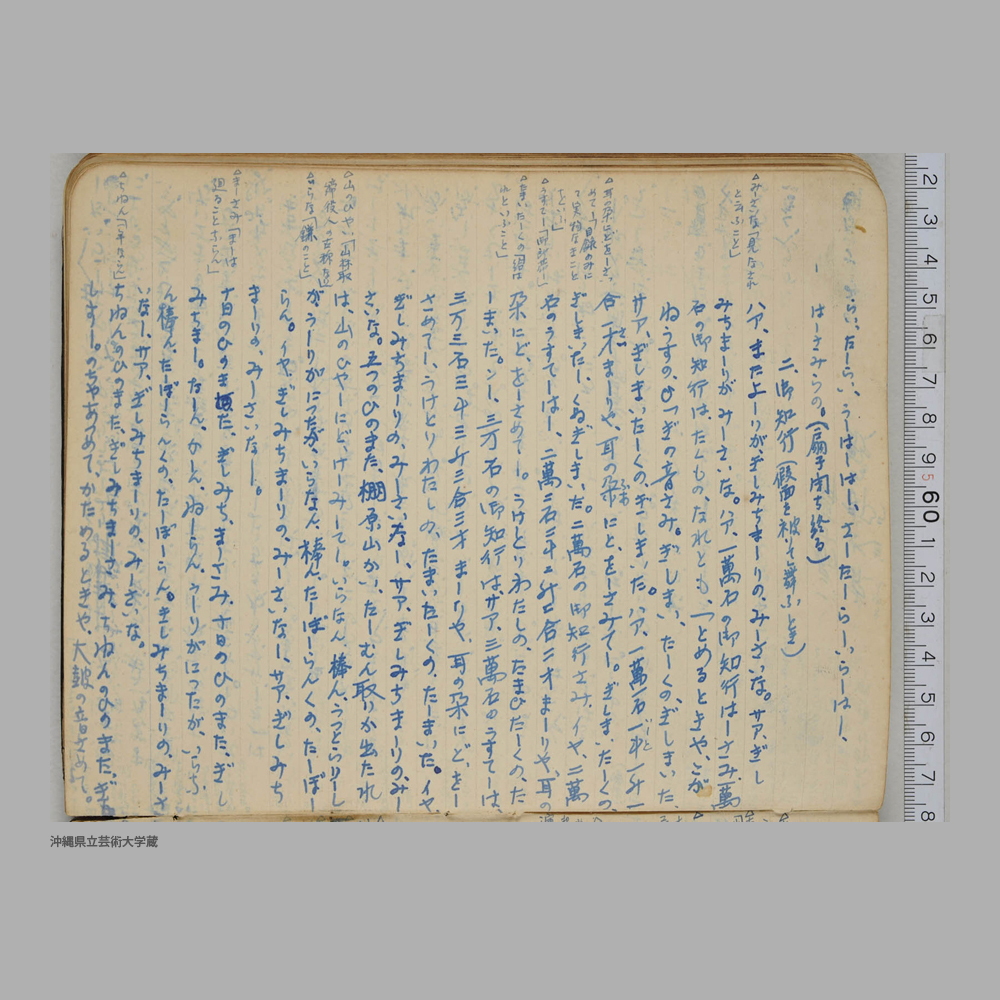 らい、たーらい、うーはーはー、さーたーらーいらーはー、
はーさみらの。(扇子閉ぢ終る)
二、御知行(假面を被って舞ふとき)
ハア、まだよーりが、ぎしみちまーりの、みーさいな。サア、ぎし
みちまーりがみーさいな。ハア、一萬石の御知行はーさみ、一萬
石の御知行は、たくもの、なれとも、つとめるときや、どが
ねうすの、ひつぎの音さみ。ぎしま、たーくの、ぎしまいた、
サア、ぎしまいたーくの、ぎーしまいた。ハア、一萬一石一斗一升一
合一才まーりや、耳の朶にど、とをーさみてー。ぎしまいたーくの、
ぎしまいたー、くぬぎしまいた。二萬石の御知行さみ、イヤ、二萬
石のうすてーは、二萬二石二斗二升二合二才まーりや、耳の
朶にど、をーさめてー。うけとりわたしの、たまひたーくの、た
ーまいた。ンー、三万石の御知行はサア、三萬石のうすてーは、
三万三石三斗三升三合三才まーりや、耳の朶にど、をー
さめてー、うけとりわたしの、たまいたーくの、たまいた。イヤ、
ぎしみちまーりの、みーさいなー、サア、ぎしみちまーりのみー
さいな。五つのひのまた、棚原山かい、たーむん取りが出たれ
は、山のひやーにど、けーみーてー。いらなん、棒ん、うっとらりーし
がうーりがにったが、いらなん、棒ん、たーばーらんくの、たーぼー
らん。イヤ、ぎしみちまーりの、みーさいなー、サア、ぎしみち
まーりの、みーさいなー。
十日のひのまた、ぎしみち、まーさみ、十日のひのまた、ぎし
みちまー。なーん、かしん、ゐーらん、うーりがにったが、いらぶ
ん、棒ん、たーぼーらんくの、たーぼーらん。ぎしみちまーりの、みーさ
いなー、サア、ぎしみちまーりの、みーさいな。
ちねんのひのまた、ぎしみちまーさみ、ちねんのひのまた、ぎ
しすーのちやあつめて、かためるときや、大皷の音さめて。
△みーさいな「見なされ
と云ふこと」
△耳の朶にどをーさ
めてー「目録のみに
て実物なきこと
△うすてー「
△たまいたーくの「給は
れといふこと」
△山のひやー「山林取
締役人の古称なり」
△いらな「鎌のこと」
△まーさみ「まーは
廻ることならん」
△ちねん「千年ならん」
沖縄県立芸術大学蔵